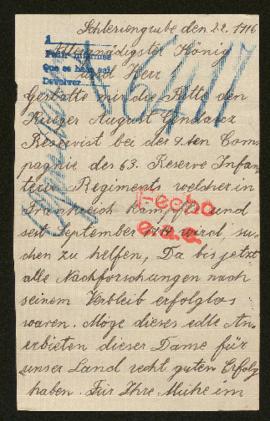 Schlesiengrube den 2.2. 1916
Allergnädigster König
und Herr
Gestatte mir die Bitte den
Krieger August
Reservist bei der 9.ten Com-
pagnie des 63. Reserve Infan-
terie Regiments welcher in
Frankreich kämpfte und
seit September 1914 wird su-
chen zu helfen, Da bis jetzt
alle Nachforschungen nach
seinem Verbleib erfolglos
waren. Möge dieses edle An-
erbieten dieser Dame für
unser Land recht guten Erfolg
haben. Für Ihre Mühe im
Pedir informes
Devolver
Fecho